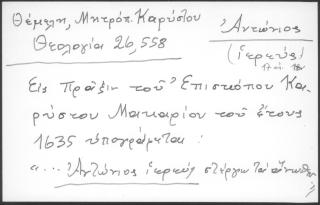 Θέμελη, Μητρόπ. Καρύστου
Θεολογία 26, 558
Ἀντώνιος
(ἱερεύς)
17 αἰ.
Εἰς Πρᾶξιν τοῦ Ἐπισκόπου Κα-
ρύστου Μακαρίου τοῦ ἔτους
1635 ὑπογράφεται:
"... Ἀντώνιος ἱερεύς στέργω τά ἄνωθεν"